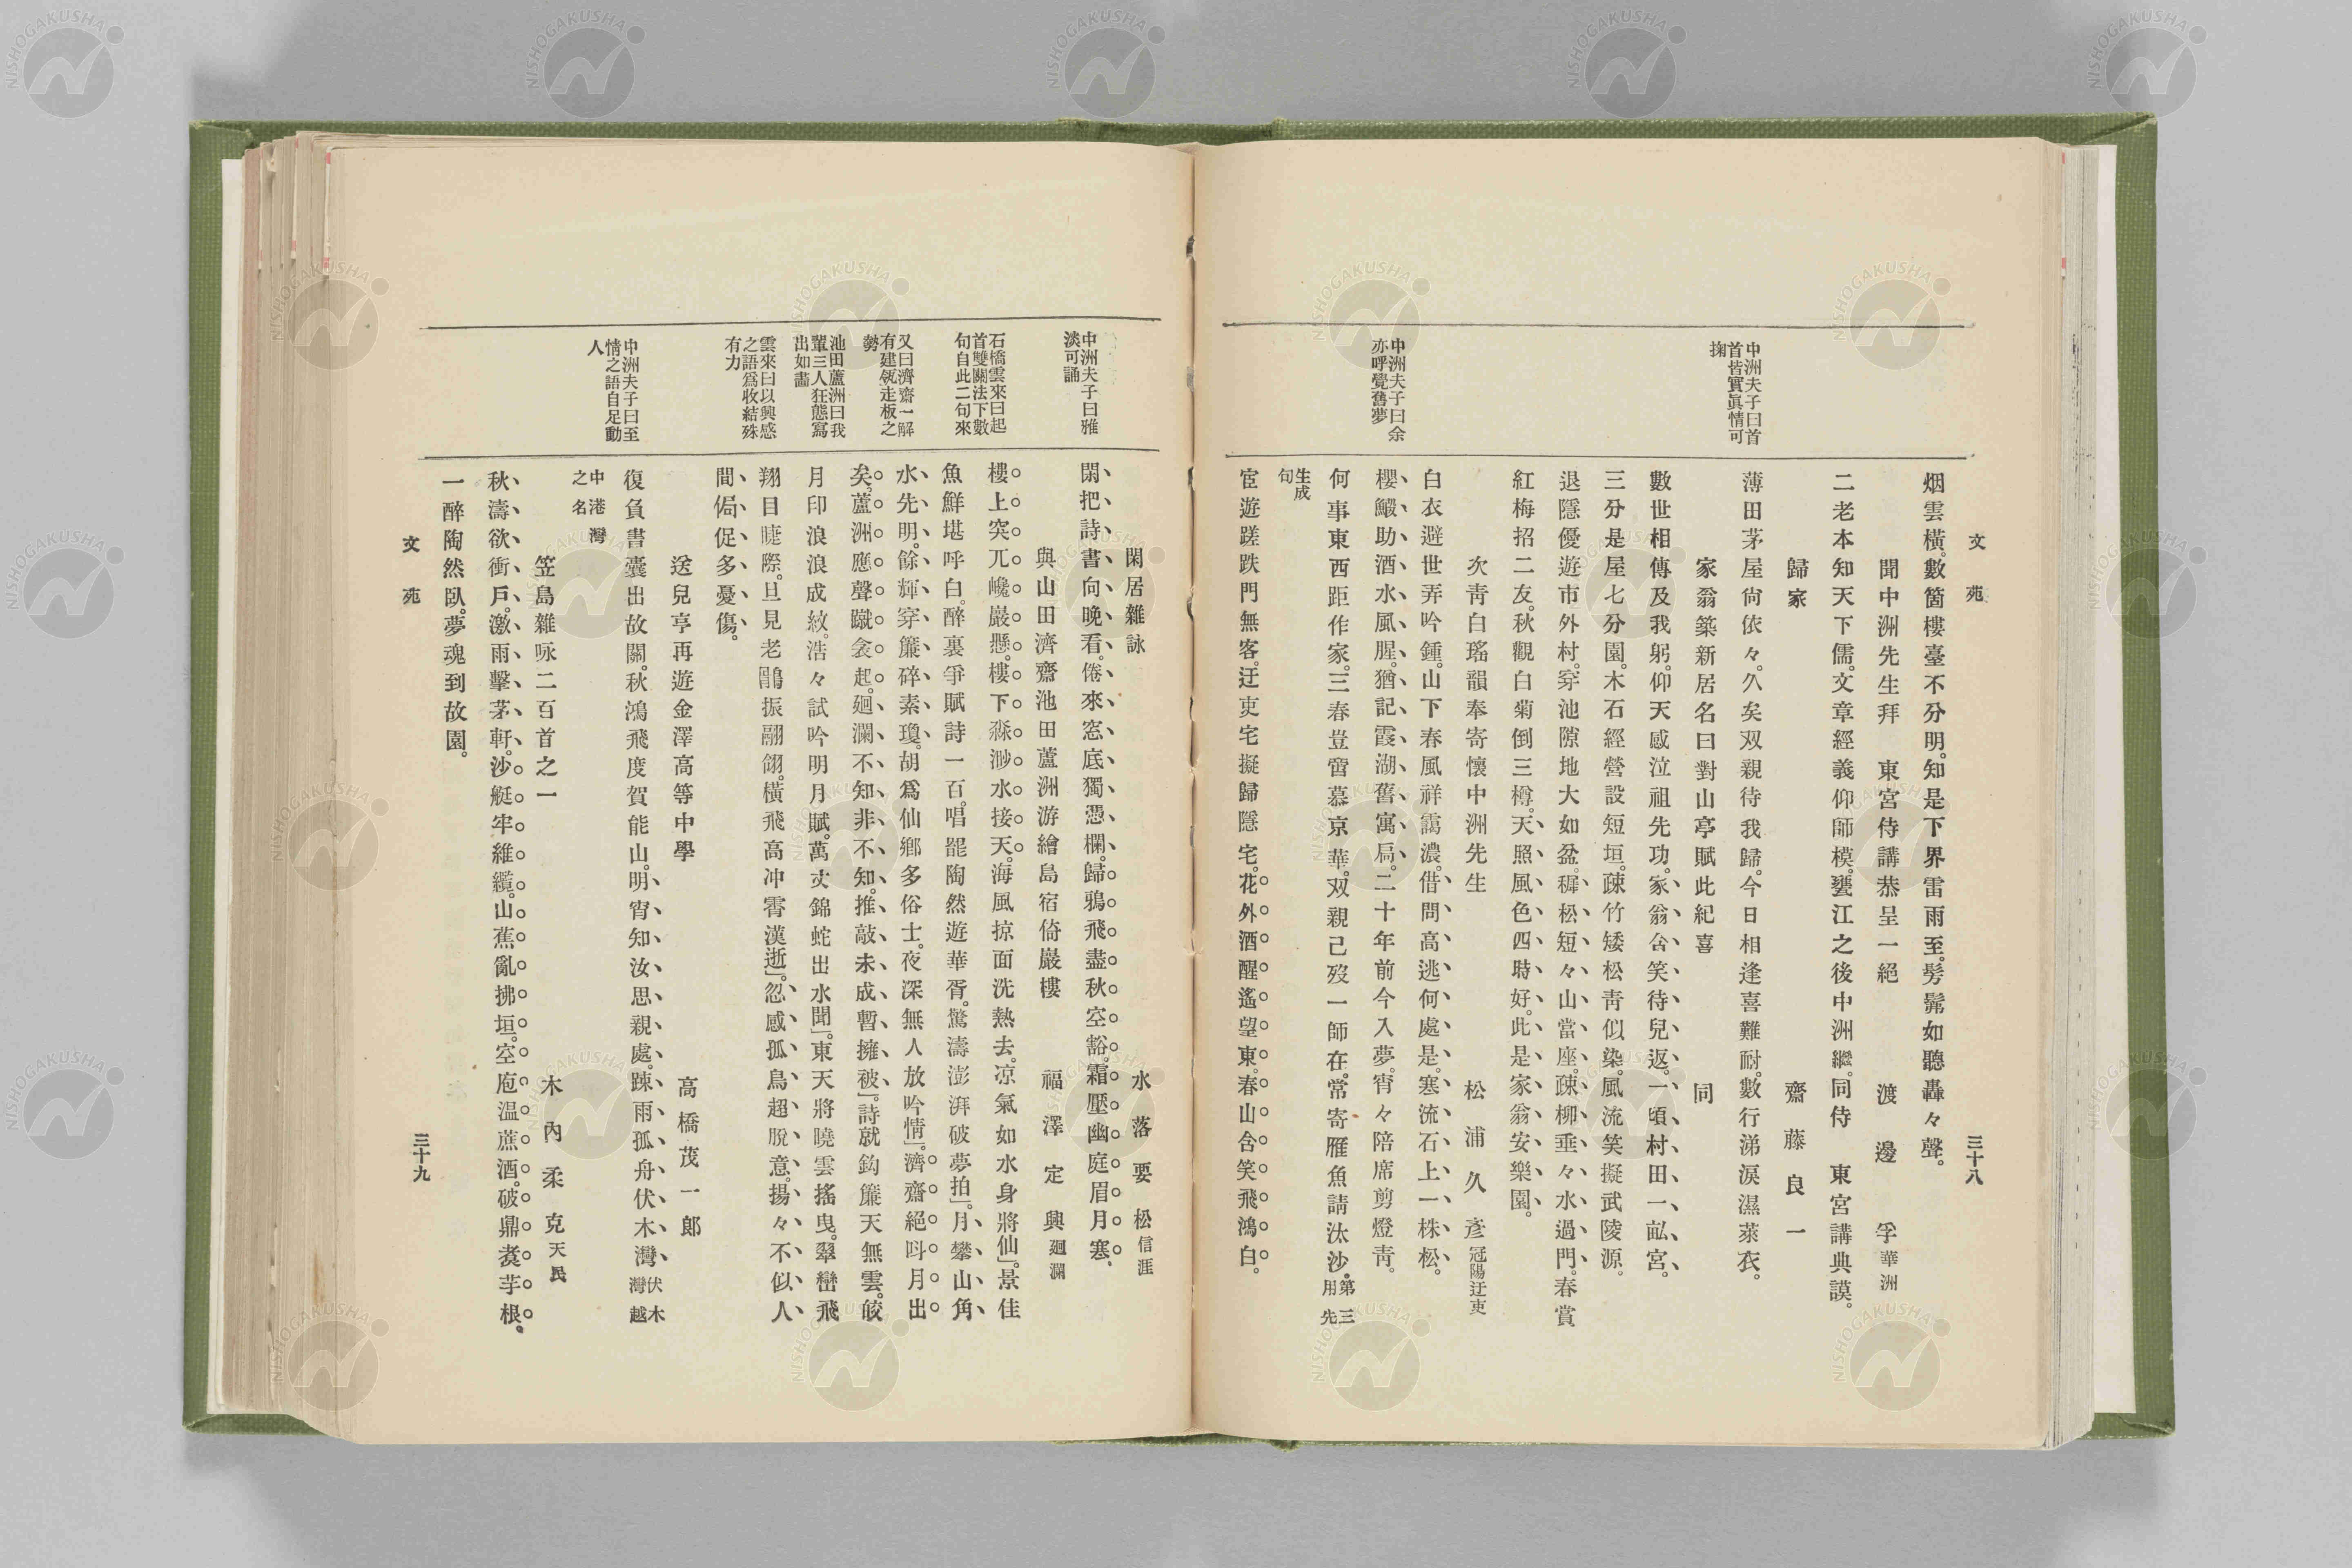 文苑
三十八
中洲夫子曰首
首皆實眞情可
掬
中洲夫子曰余
亦呼覺舊夢
烟雲橫。數箇樓臺不分明。知是下界雷雨至。髣髴如聽轟々聲。
聞中洲先生拜 東宮侍講恭呈一絕 渡邊孚華洲
二老本知天下儒。文章經義仰師模。甕江之後中洲繼。同侍 東宮講典謨。
歸家 齋藤良一
薄田茅屋尙依々。久矣双親待我歸。今日相逢喜難耐。數行涕淚濕萊衣。
家翁築新居名曰對山亭賦此紀喜 同
數世相傳及我躬。仰天感泣祖先功。家翁含笑待兒返。一頃村田一畆宮。
三分是屋七分園。木石經營設短垣。疎竹矮松靑似染。風流笑擬武陵源。
退隱優遊市外村。穿池隙地大如盆。穉松短々山當座。疎柳垂々水過門。春賞
紅梅招二友。秋觀白菊倒三樽。天照風色四時好。此是家翁安樂園。
次靑白瑤韻奉寄懷中洲先生 松浦久彥冠陽迂吏
白衣避世弄吟鍾。山下春風祥靄濃。借問高逃何處是。寒流石上一株松。
櫻鰕助酒水風腥。猶記霞湖舊寓扃。二十年前今入夢。宵々陪席剪燈靑。
何事東西距作家。三春豈啻慕京華。双親已歿一師在。常寄雁魚請汰沙。第三用先
生成句
宦遊蹉跌門無客。迂吏宅擬歸隱宅。花外酒醒遙望東。春山含笑飛鴻白。
中洲夫子曰雅
淡可誦
石橋雲來曰起
首雙關法下數
句自此二句來
又曰濟齋一解
有建瓴走板之
勢
池田蘆洲曰我
輩三人狂態寫
出如畵
雲來曰以興感
之語爲收結殊
有力
中洲夫子曰至
情之語自足動
人
閑居雜詠 水落要松信涯
閑把詩書向晚看。倦來窓底獨憑欄。歸鴉飛盡秋空豁。霜壓幽庭眉月寒。
與山田濟齋池田蘆洲游繪島宿倚巖樓 福澤定興廻瀾
樓上突兀巉巖懸。樓下淼渺水接天。海風掠面洗熱去。凉氣如水身將仙」。景佳
魚鮮堪呼白。醉裏爭賦詩一百。唱罷陶然遊華胥。驚濤澎湃破夢拍」。月攀山角
水先明。餘輝穿簾碎素瓊。胡爲仙鄕多俗士。夜深無人放吟情」。濟齋絕呌月出
矣。蘆洲應聲蹴衾起。廻瀾不知非不知。推敲未成暫擁被」。詩就鈎簾天無雲。皎
月印浪浪成紋。浩々試吟明月賦。萬丈錦蛇出水聞」。東天將曉雲搖曳。翠巒飛
翔目睫際。旦見老鶻振翮翎。橫飛高冲霄漢逝」。忽感孤鳥超脫意。揚々不似人
間侷促多憂傷。
送兒亨再遊金澤高等中學 高橋茂一郞
復負書囊出故關。秋鴻飛度賀能山。明宵知汝思親處。踈雨孤舟伏木灣伏木灣越
中港灣之名
笠島雜咏二百首之一 木內柔克天民
秋濤欲衝戶。激雨擊茅軒。沙艇牢維纜。山蕉亂拂垣。空庖温蔗酒。破鼎煑芋根。
一醉陶然臥。夢魂到故園。
文苑
三十九